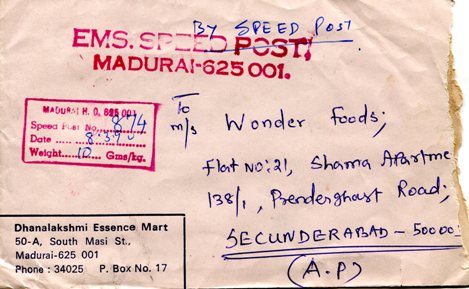 By SPEED POST
EMS. SPEED POST,
MADURAI-625 001.
MADURAI H. O. 625 001
Speed Post No. 874
Date ..... 8.3.90
Weight..... 10 ..... Gms/kg.
To
M/s Wonder Foods;
Flat No: 21, Shama Apartme
138/1, Prenderghast Road;
SECUNDERABAD - 50000
(A.P)
Dhanalakshmi Essence Mart
50-A, South Masi St.,
Madurai-625 001
Phone : 34025 P. Box No. 17